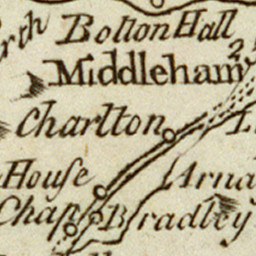 Bolton Hall
2
Middleham
Charlton
House
Arna
Chap
Bradley